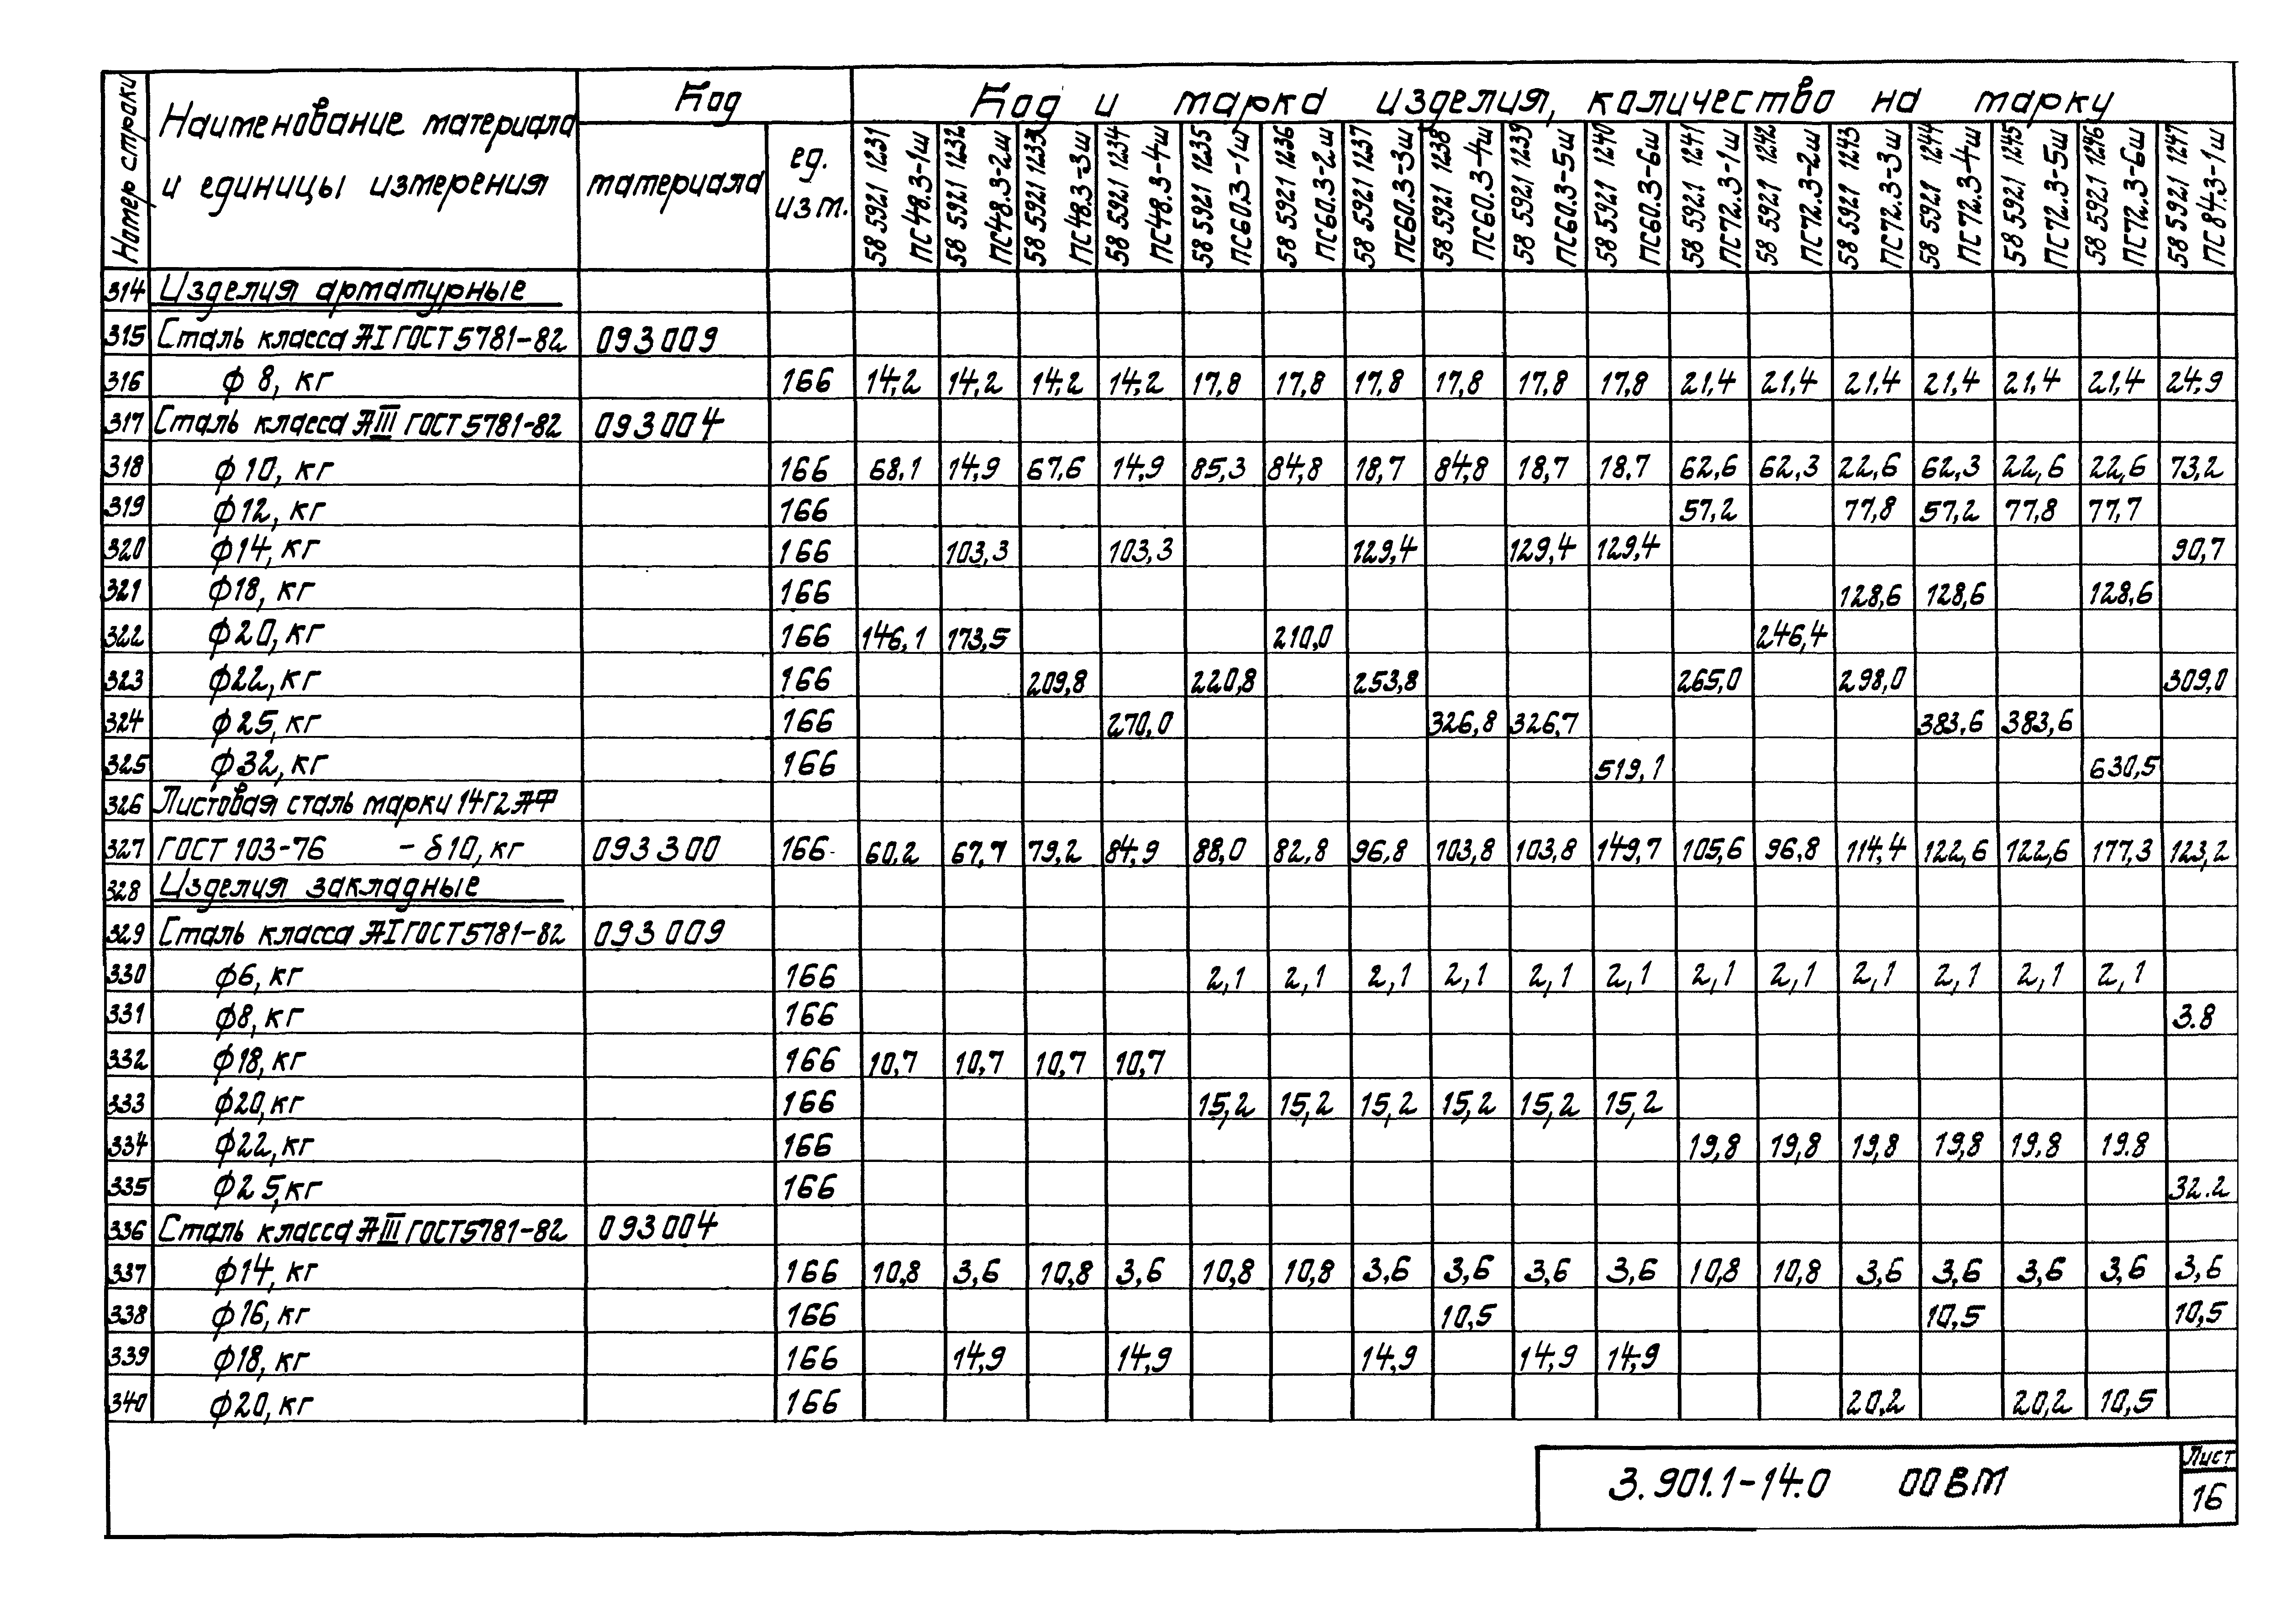 Номер строки
Наименование материала и единицы измерения
Код
материала
ед. изм.
Код и марка изделия, количество на марку
58 5921 1231 ПС48.3-1ш
58 5921 1232 ПС48.3-2ш
58 5921 1233 ПС48.3-3ш
58 5921 1234 ПС48.3-4ш
58 5921 1235 ПС60.3-1ш
58 5921 1236 ПС60.3-2ш
58 5921 1237 ПС60.3-3ш
58 5921 1238 ПС60.3-4ш
58 5921 1239 ПС60.3-5ш
58 5921 1240 ПС60.3-6ш
58 5921 1241 ПС72.3-1ш
58 5921 1242 ПС72.3-2ш
58 5921 1243 ПС72.3-3ш
58 5921 1244 ПС72.3-4ш
58 5921 1245 ПС72.3-5ш
58 5921 1246 ПС72.3-6ш
58 5921 1247 ПС84.3-1ш
314 Изделия арматурные
315 Сталь класса АI ГОСТ 5781-82 093009
316 ф 8, кг 166 14,2 14,2 14,2 14,2 17,8 17,8 17,8 17,8 17,8 17,8 21,4 21,4 21,4 21,4 21,4 21,4 24,9
317 Сталь класса АIII ГОСТ 5781-82 093004
318 ф 10, кг 166 68,1 14,9 67,6 14,9 85,3 84,8 18,7 84,8 18,7 18,7 62,6 62,3 22,6 62,3 22,6 22,6 73,2
319 ф12, кг 166 57,2 77,8 57,2 77,8 77,7
320 ф14, кг 166 103,3 103,3 129,4 129,4 129,4 90,7
321 ф18, кг 166 128,6 128,6 128,6
322 ф20, кг 166 146,1 173,5 210,0 246,4
323 ф22, кг 166 209,8 220,8 253,8 265,0 298,0 309,0
324 ф25, кг 166 270,0 326,8 326,7 383,6 383,6
325 ф32, кг 166 519,1 630,5
326 Листовая сталь марки 14Г2АФ
327 ГОСТ 103-76 - δ10, кг 093300 166 60,2 67,7 79,2 84,9 88,0 82,8 96,8 103,8 103,8 149,7 105,6 96,8 114,4 122,6 122,6 177,3 123,2
328 Изделия закладные
329 Сталь класса АI ГОСТ 5781-82 093009
330 ф6, кг 166 2,1 2,1 2,1 2,1 2,1 2,1 2,1 2,1 2,1 2,1 2,1 2,1
331 ф8, кг 166 3.8
332 ф18, кг 166 10,7 10,7 10,7 10,7
333 ф20, кг 166 15,2 15,2 15,2 15,2 15,2 15,2
334 ф22, кг 166 19,8 19,8 19,8 19,8 19.8 19.8
335 ф25, кг 166 32.2
336 Сталь класса АIII ГОСТ 5781-82 093004
337 ф14, кг 166 10,8 3,6 10,8 3,6 10,8 10,8 3,6 3,6 3,6 3,6 10,8 10,8 3,6 3,6 3,6 3,6 3,6
338 ф16, кг 166 10,5 10,5 10,5
339 ф18, кг 166 14,9 14,9 14,9 14,9 14,9
340 ф20, кг 166 20,2 20,2 10,5
3.901.1-14.0 00ВМ
Лист
16